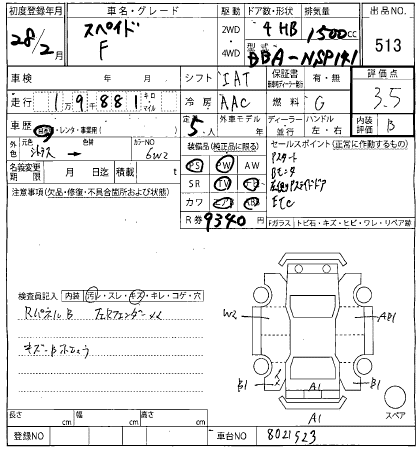 初度登録年月 車名・グレード 駆動 ドア数・形状 排気量 出品NO.
28/2月 スペイド F 2WD 4WD 4HB 1500cc 513
型式 DBA-NSP141
車検 年 月 シフト IAT 保証書 有・無 評価点
走行 19881 キロ マイル 冷房 AAC 燃料 G 3.5
車歴 自家・レンタ・事業用( ) 定員 5人 外車モデル 年 ディーラー 並行 ハンドル 左・右 内装評価 B
外色 元色 色替 カラーNO 6W2
装備品(純正品に限る) セールスポイント(正常に作動するもの)
名義変更期限 月 日迄 積載 t
PS PW AW
SR TV ナビ
カワ エアB ABS
R券 9340円
Pスタート
Bモニタ
ETC
注意事項(欠品・修復・不具合箇所および状態)
Fガラス トビ石・キズ・ヒビ・ワレ・リペア跡
検査員記入 内装 汚レ・スレ・キズ・キレ・コゲ・穴
RパネルB
W2 AB1
B1 A1 B1
A1
スペア
長さ cm 幅 cm 高さ cm
登録NO 車台NO 8021523